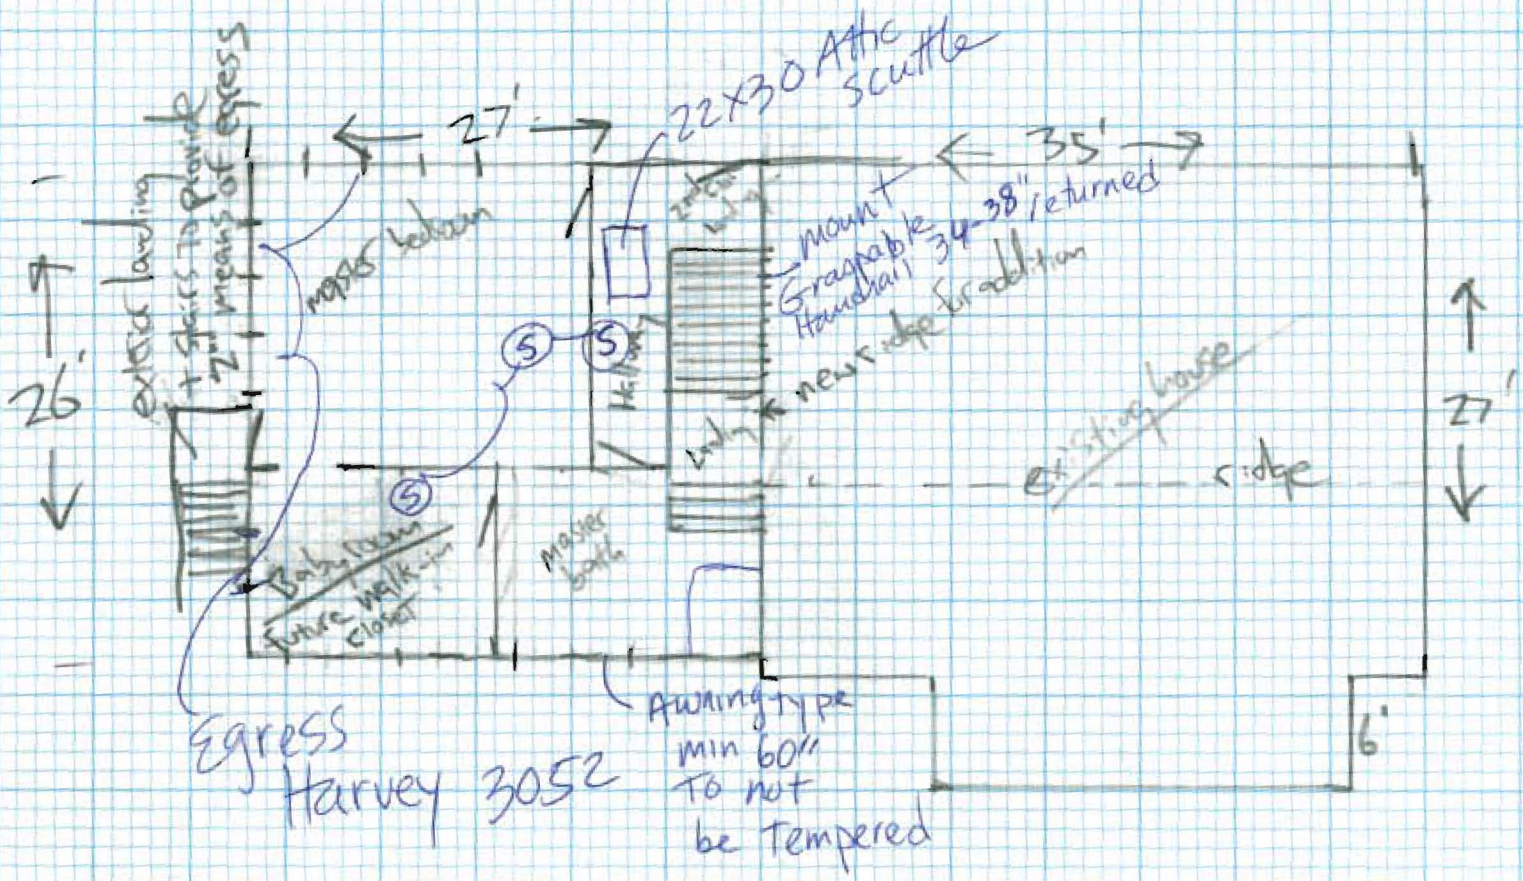 22x30 Attic
scuttle
27'
35'
exterior landing
+ stairs to provide
2nd means of egress
master bedroom
2nd
mount
Graspable
Handrail 34-38" returned
new ridge for addition
26'
S
S
S
Hallway
Landing
existing house
ridge
27'
Baby room
future walk-in
closet
master
bath
6'
Egress
Harvey 3052
Awning type
min 60"
To not
be Tempered